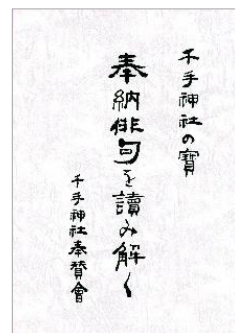 千手神社の寶
奉納俳句を讀み解く
千手神社奉賛會